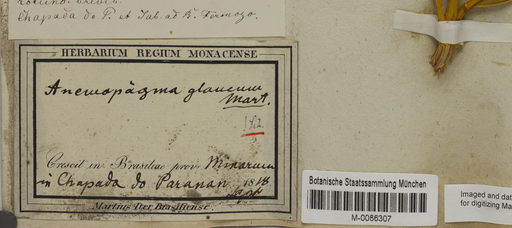 Chapada do P. et Tab. ad R. Formozo.
HERBARIUM REGIUM MONACENSE
Anemopægma glaucum
Mart.
Crescit in Brasiliae prov. Minarum
in Chapada do Paranan 1818
Sept.
Martius Iter Brasiliense.
Botanische Staatssammlung München
M-0086307
Imaged and dat
for digitizing Ma